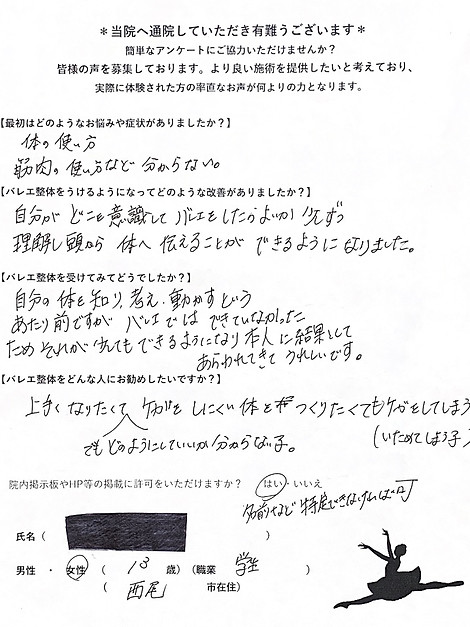 ＊当院へ通院していただき有難うございます＊
簡単なアンケートにご協力いただけませんか？
皆様の声を募集しております。より良い施術を提供したいと考えており、
実際に体験された方の率直なお声が何よりの力となります。
【最初はどのようなお悩みや症状がありましたか？】
体の使い方
筋肉の使い方など分からない。
【バレエ整体をうけるようになってどのような改善がありましたか？】
自分がどこを意識してバレエをしたらよいか少しずつ
理解し頭から体へ伝えることができるようになりました。
【バレエ整体を受けてみてどうでしたか？】
自分の体を知り、考え、動かすという
あたり前ですがバレエではできていなかった
ためそれが少しでもできるようになり本人に結果として
あらわれてきてうれしいです。
【バレエ整体をどんな人にお勧めしたいですか？】
上手くなりたくて ケガをしにくい体を つくりたくてもケガをしてしまう
でもどのようにしていいか分からない子。
(いためてしまう子)
院内掲示板やHP等の掲載に許可をいただけますか？ はい・いいえ
名前など特定できなければ可
氏名（ ）
男性 ・ 女性 （ 13 歳）（職業 学生 ）
（ 西尾 市在住）